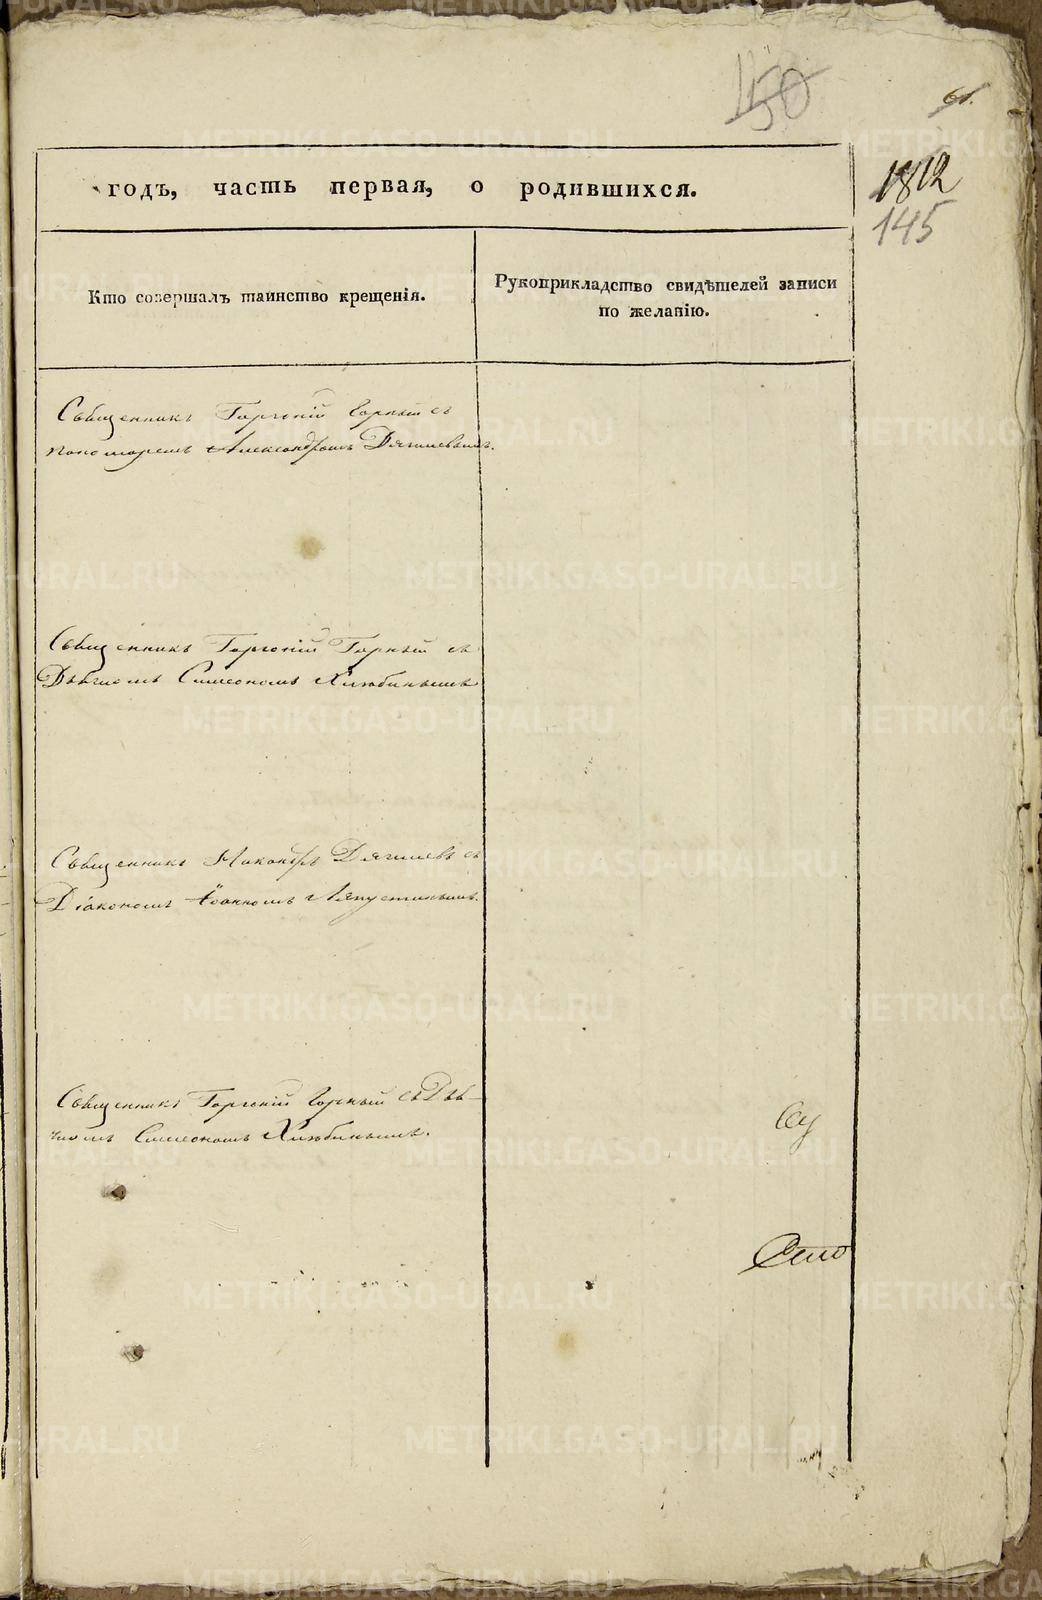 150
61.
1812
145
годъ, часть первая, о родившихся.
Кто совершалъ таинство крещенія.
Рукоприкладство свидѣтелей записи
по желанію.
Священникъ Горгоній Горный съ
пономаремъ Александромъ Дягилевымъ.
Священникъ Горгоній Горный съ
Дьячкомъ Симеономъ Хлюбинымъ
Священникъ Никандръ Дягилевъ съ
Діакономъ Іоанномъ Ляпустинымъ.
Священникъ Горгоній Горный съ Дья-
чкомъ Симеономъ Хлюбинымъ.
METRIKI.GASO-URAL.RU